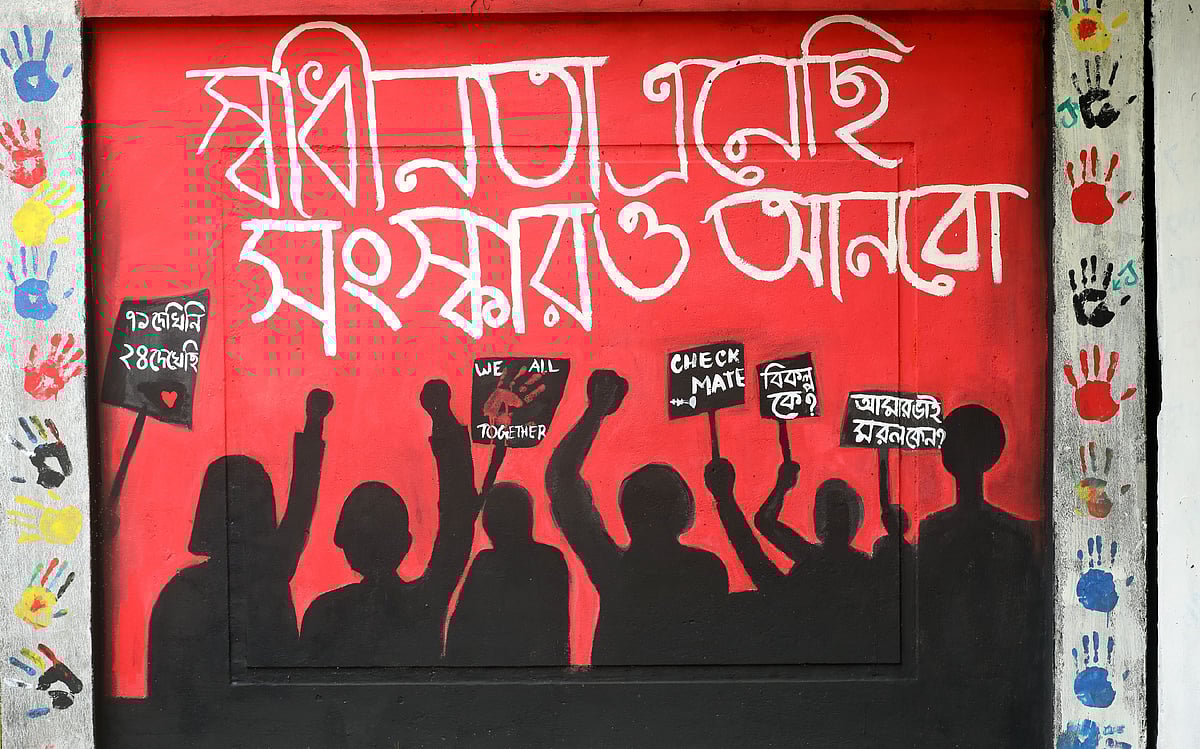 স্বাধীনতা এনেছি
সংস্কারও আনবো
৭১ দেখিনি
২৪ দেখেছি
WE ALL
TOGETHER
CHECK
MATE
বিকল্প
কে?
আমার ভাই
মরল কেন?